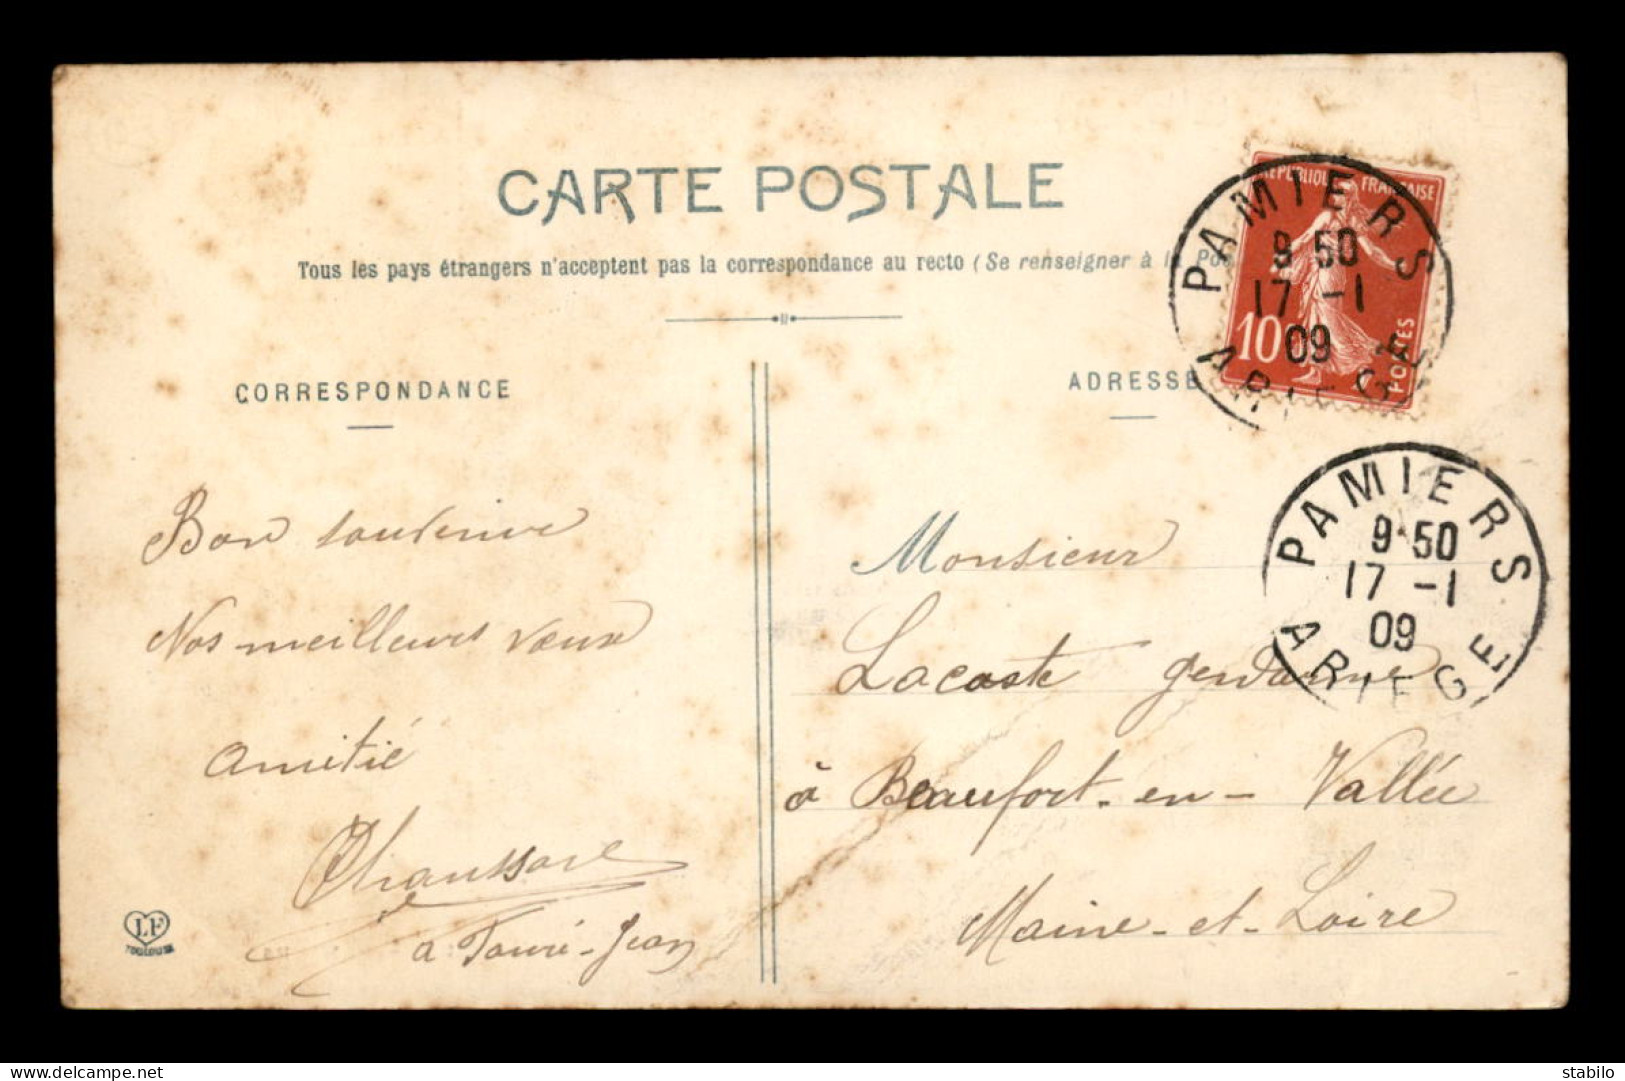 CARTE POSTALE
Tous les pays étrangers n'acceptent pas la correspondance au recto (Se renseigner à la Pos
CORRESPONDANCE
ADRESSE
REPUBLIQUE FRANÇAISE
10
POSTES
PAMIERS
9 50
17 -1
09
ARIEGE
PAMIERS
9·50
17 -1
09
ARIEGE
Bon souvenir
Nos meilleurs vœux
amitié
a Jean
Monsieur
Lacoste gendarme
à Beaufort-en-Vallée
Maine-et-Loire
LF
TOULOUSE
delcampe.net
stabilo